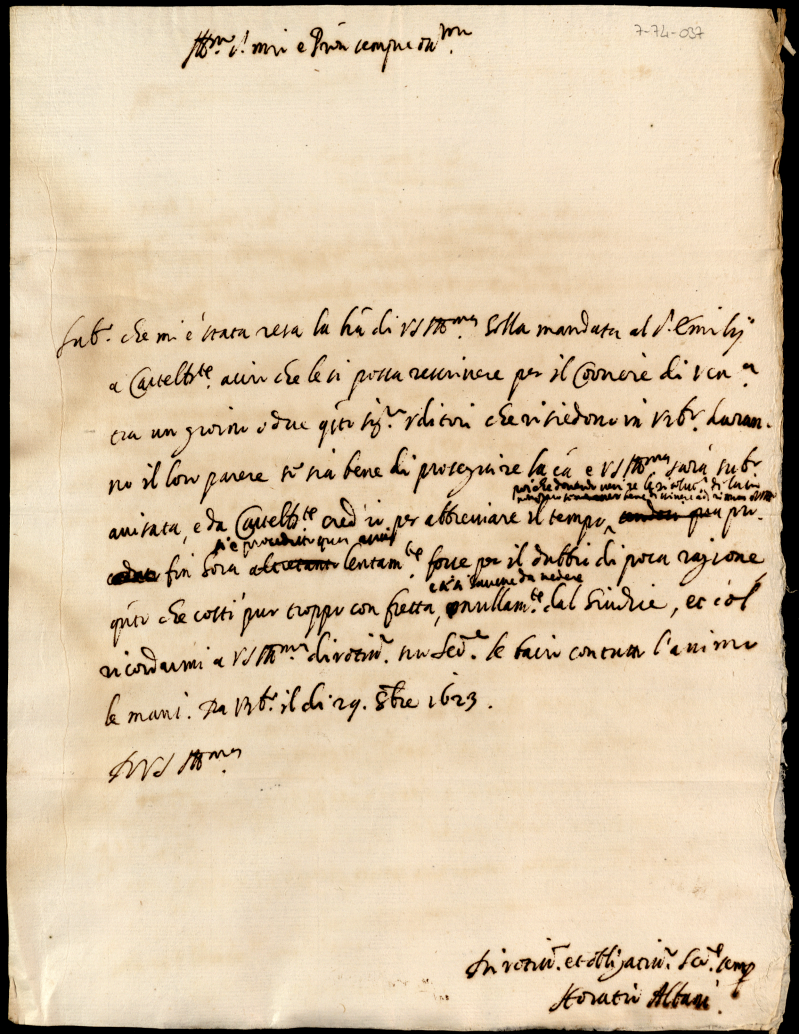 7-74-037
Ill.mo S.r mio e Pron sempre oss.mo
Sub.o che mi è stata resa la lra di VS Ill.ma l'ho mandata al S.r Emilij
a Castelb.te acciò che le si possa rescrivere per il Corriere di Ven.a
tra un giorno o due q.ti Sig.ri Uditori che risiedono in Urb.o daran-
no il loro parere se sia bene di proseguire la ca e VS Ill.ma sarà sub.o
avisata, e da Castelb.te cred'io per abbreviare il tempo,
fin hora lentam.te forse per il dubbio di poca ragione
q.to che costì pur troppo con fretta, e nullam.te dal Giudice, et io col
ricordarmi a VS Ill.ma divotiss.o suo Ser.e le bacio con tutto l'animo
le mani. Da Urb.o il dì 29. 8bre 1623.
Di VS Ill.ma
Divotiss.o et obligatiss.o Ser.e semp.
Horatio Albani.